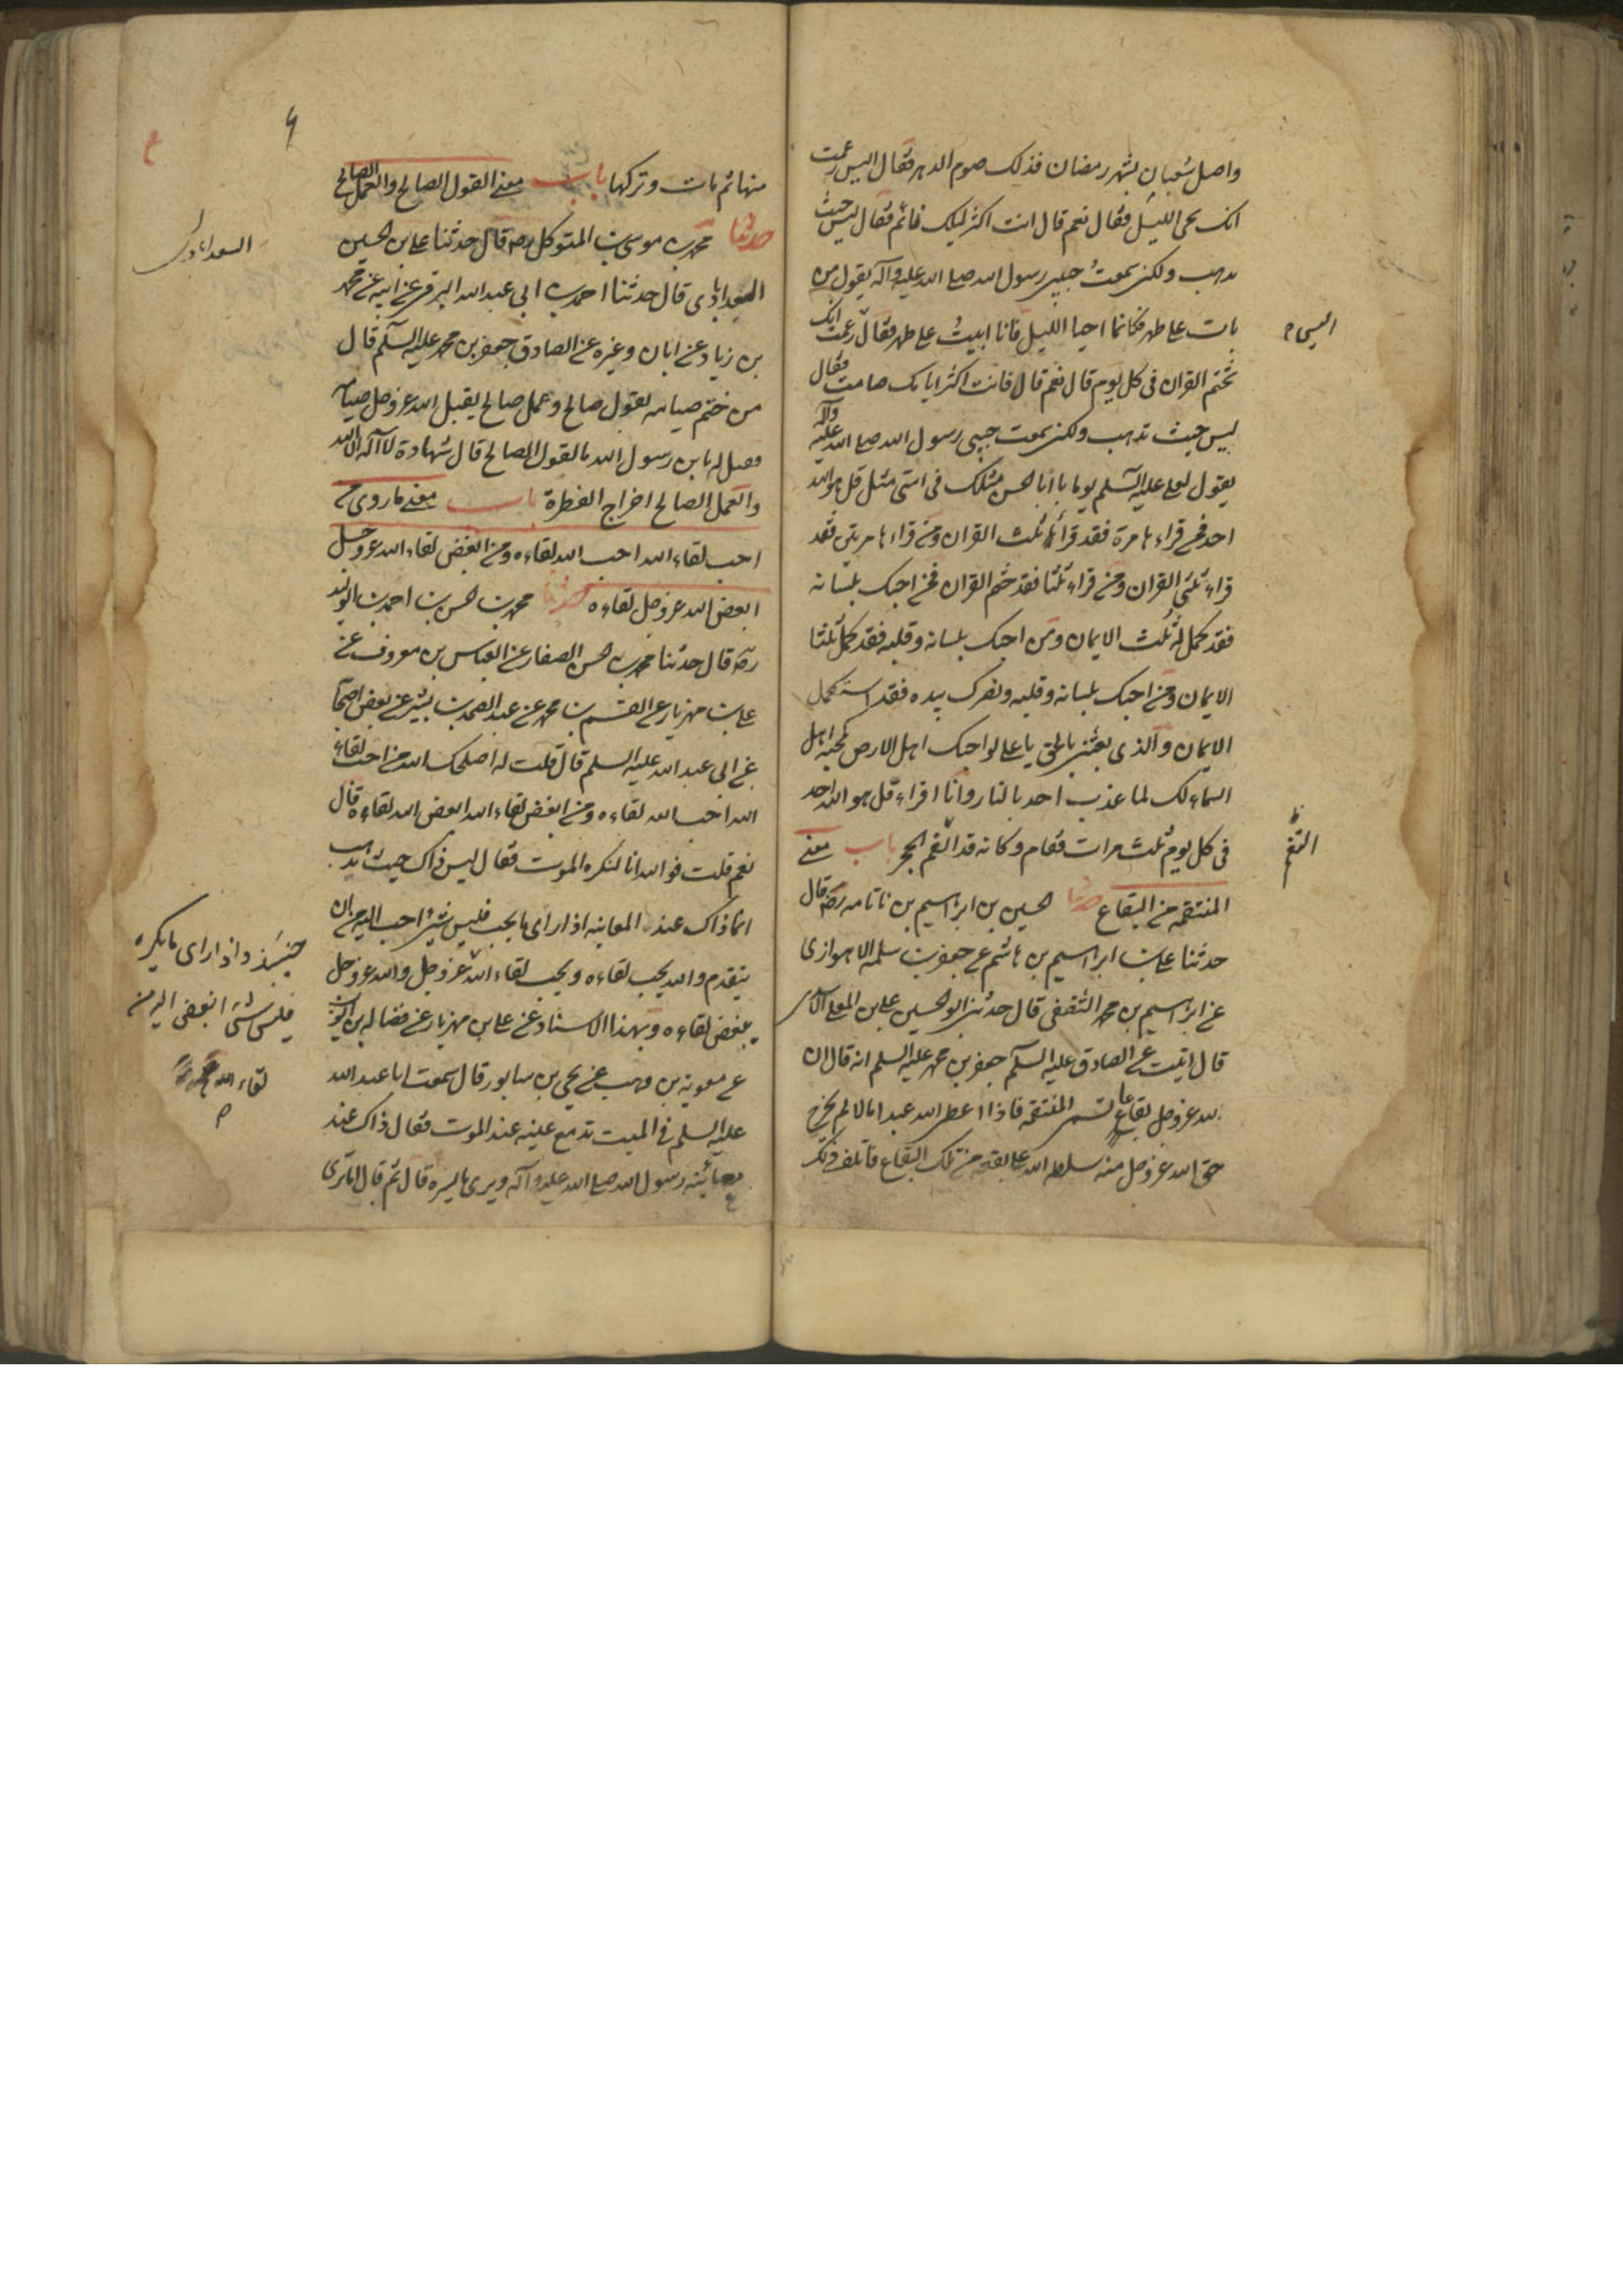 واصل شعبان بشهر رمضان فذلك صوم الدهر فقال اليس زعمت
انك تحى الليل فقال نعم قال انت اكثر ليلك نائم فقال ليس حيث
تذهب ولكنى سمعت حبيبى رسول الله صلى الله عليه وآله يقول من
بات على طهر فكانما احيا الليل فانا ابيت على طهر فقال زعمت انك
اليس
تختم القران فى كل يوم قال نعم قال فانت اكثر ايامك صامت فقال
ليس حيث تذهب ولكنى سمعت حبيبى رسول الله صلى الله عليه وآله
يقول لعلى عليه السلم يوما يا ابا الحسن مثلك فى امتى مثل قل هو الله
احد فمن قراءها مرة فقد قرأ ثلث القران ومن قراءها مرتين فقد
قراء ثلثى القران ومن قراء ثلثا فقد ختم القران فمن احبك بلسانه
فقد كمل له ثلث الايمان ومن احبك بلسانه وقلبه فقد كمل ثلثا
الايمان ومن احبك بلسانه وقلبه ونصرك بيده فقد استكمل
الايمان والذى بعثنى بالحق يا على لو احبك اهل الارض كمحبة اهل
السماء لك لما عذب احد بالنار وانا اقراء قل هو الله احد
فى كل يوم ثلث مرات فقام وكانه قد القم الحجر باب معنى
التقم
المنتقمه من البقاع حدثنا الحسين بن ابراهيم بن ناتانه رضه قال
حدثنا على بن ابراهيم بن هاشم عن جعفر بن سلمه الاهوازى
عن ابراهيم بن محمد الثقفى قال حدثنى ابو الحسين على بن المعلى الاسدى
قال انبئت عن الصادق عليه السلم جعفر بن محمد عليه السلم انه قال ان
لله عز وجل بقاعا تسمى المنتقمه فاذا اعطى الله عبدا مالا لم يخرج
حق الله عز وجل منه سلط الله عليه بقعة من تلك البقاع فاتلف ذلك
منها ثم مات وتركها باب معنى القول الصالح والعمل الصالح
حدثنا محمد بن موسى بن المتوكل رضه قال حدثنا على بن الحسين
السعدابادى
السعدابادى قال حدثنا احمد بن ابى عبدالله البرقى عن ابيه عن محمد
بن زياد عن ابان وغيره عن الصادق جعفر بن محمد عليه السلم قال
من ختم صيامه بقول صالح وعمل صالح يقبل الله عز وجل صيامه
فقيل له يا بن رسول الله ما القول الصالح قال شهادة لا اله الا الله
والعمل الصالح اخراج الفطرة باب معنى ما روى من
احب لقاء الله احب الله لقاءه ومن ابغض لقاء الله عز وجل
ابغض الله عز وجل لقاءه حدثنا محمد بن الحسن بن احمد بن الوليد
رضه قال حدثنا محمد بن الحسن الصفار عن العباس بن معروف عن
على بن مهزيار عن القسم بن محمد عن عبد الصمد بن بشير عن بعض اصحابنا
عن ابى عبد الله عليه السلم قال قلت له اصلحك الله من احب لقاء
الله احب الله لقاءه ومن ابغض لقاء الله ابغض الله لقاءه قال
نعم قلت فوالله انا لنكره الموت فقال ليس ذاك حيث تذهب
انما ذاك عند المعاينه اذا راى ما يحب فليس شئ احب اليه من ان
يتقدم والله يحب لقاءه ويحب لقاء الله عز وجل والله عز وجل
واذا راى ما يكره
فليس شئ ابغض اليه من
لقاء الله
يبغض لقاءه وبهذا الاسناد عن على بن مهزيار عن فضاله بن ايوب
عن معوية بن وهب عن يحى بن سابور قال سمعت ابا عبد الله
عليه السلم فى الميت تدمع عينه عند الموت فقال ذاك عند
معاينه رسول الله صلى الله عليه وآله ويرى ما يسره قال ثم قال اما ترى